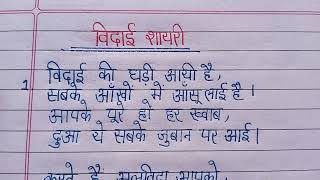 विदाई शायरी
1. विदाई की घड़ी आयी है,
सबके आँखों में आँसू लाई है।
आपके पूरे हो हर ख्वाब,
दुआ ये सबके जुबान पर आई।
करते हैं अलविदा आपको,